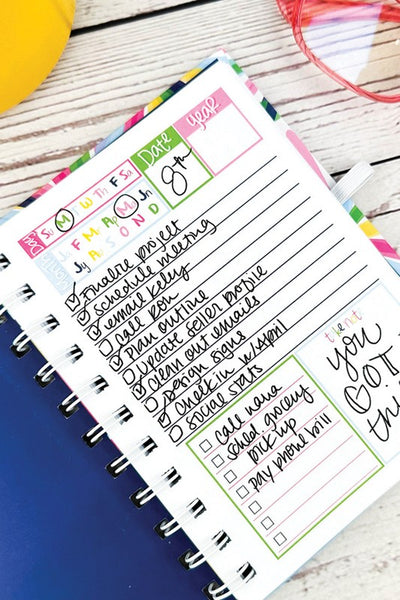 Day
Su M T W Th F Sa
Month
Ja F M Ap M Jn
Jy A S O N D
Date
8th
Year
finalize project
schedule meeting
email kelly
call ron
plan outline
update seller profile
clean out emails
design signs
check in w/April
social stats
call nana
sched grocery
pick up
pay phone bill
you
GOT
this